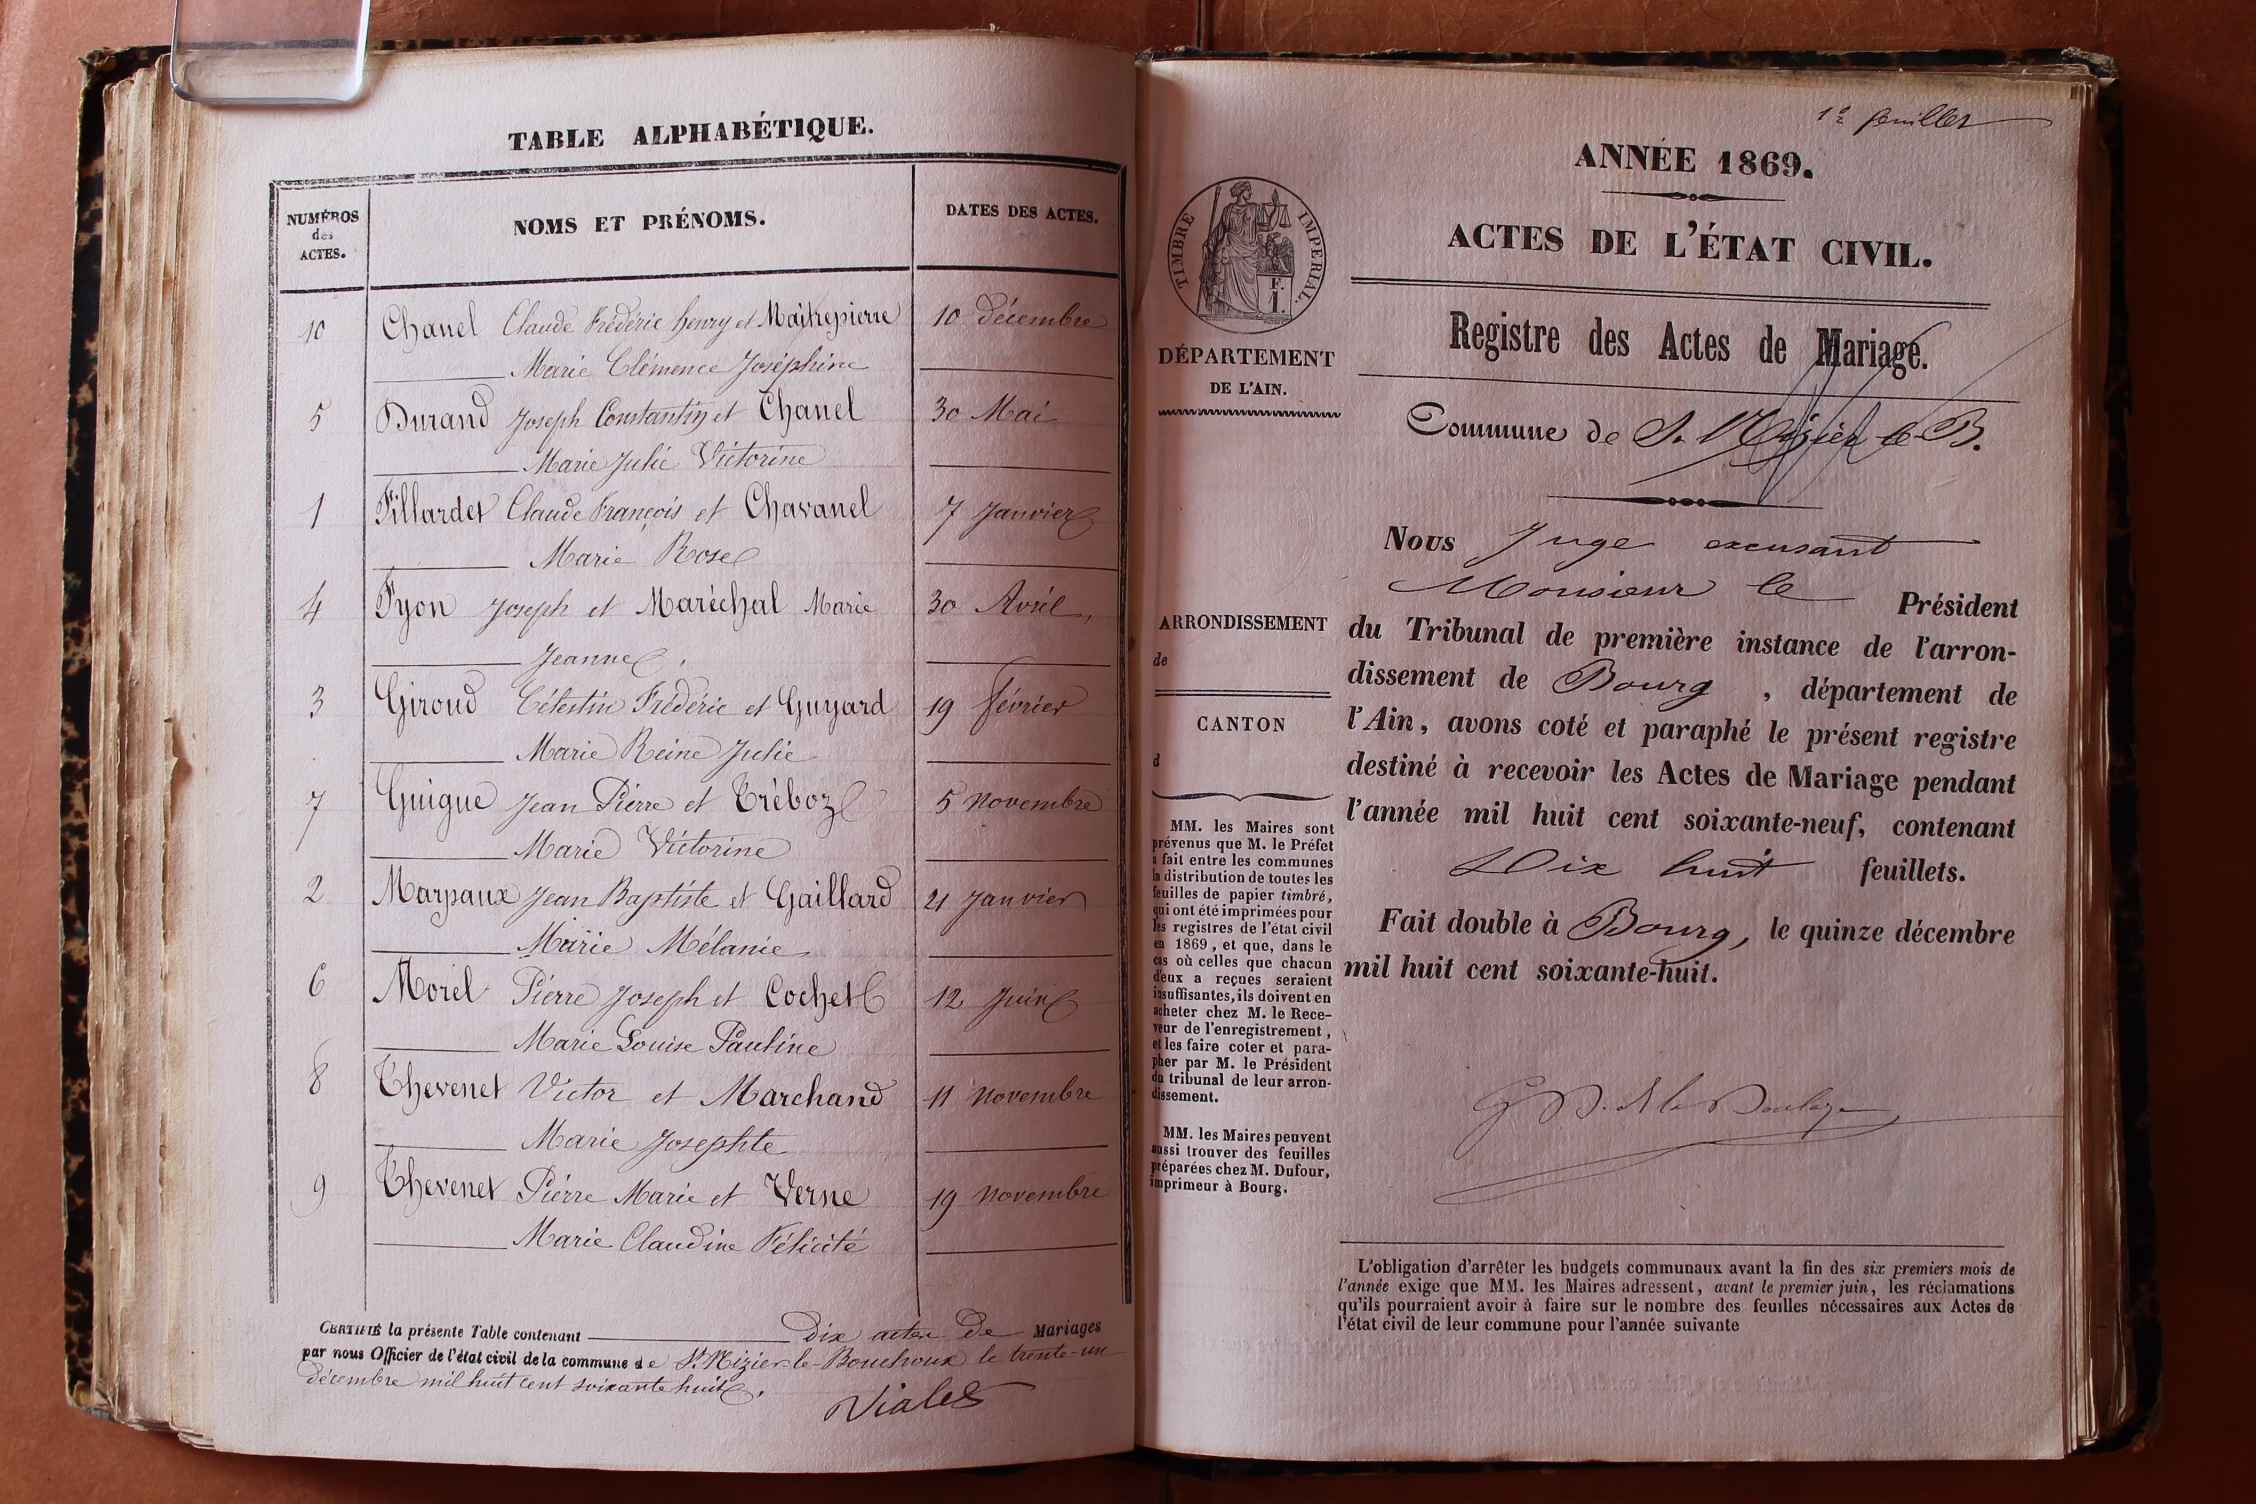 TABLE ALPHABÉTIQUE.
NUMÉROS
des
ACTES.
NOMS ET PRÉNOMS.
DATES DES ACTES.
10 Chanel Claude Frédéric henry et Maîtrepierre 10 décembre
Marie Clémence Joséphine
5 Durand Joseph Constantin et Chanel 30 Mai
Marie Julie Victorine
1 Fillardet Claude François et Chavanel 7 Janvier
Marie Rose
4 Fyon Joseph et Maréchal Marie 30 Avril,
Jeanne,
3 Giroud Célestin Frédéric et Guyard 19 février
Marie Reine Julie
7 Guigue Jean Pierre et Tréboz 5 novembre
Marie Victorine
2 Marpaux Jean Baptiste et Gaillard 21 Janvier
Marie Mélanie
6 Morel Pierre Joseph et Cochet 12 Juin
Marie Louise Pauline
8 Thevenet Victor et Marchand 11 novembre
Marie Josephte
9 Thevenet Pierre Marie et Verne 19 novembre
Marie Claudine Félicité
CERTIFIÉ la présente Table contenant Dix actes De Mariages
par nous Officier de l'état civil de la commune de St. Nizier-le-Bouchoux le trente-un
décembre mil huit cent soixante huit.
Vialet
1er feuillet
ANNÉE 1869.
ACTES DE L'ÉTAT CIVIL.
TIMBRE IMPERIAL.
F.
1.
DÉPARTEMENT
DE L'AIN.
Registre des Actes de Mariage.
Commune de S. Nizier le B.
ARRONDISSEMENT
de
CANTON
d
MM. les Maires sont
prévenus que M. le Préfet
a fait entre les communes
la distribution de toutes les
feuilles de papier timbré,
qui ont été imprimées pour
les registres de l'état civil
en 1869, et que, dans le
cas où celles que chacun
d'eux a reçues seraient
insuffisantes, ils doivent en
acheter chez M. le Rece-
veur de l'enregistrement,
et les faire coter et para-
pher par M. le Président
du tribunal de leur arron-
dissement.
MM. les Maires peuvent
aussi trouver des feuilles
préparées chez M. Dufour,
imprimeur à Bourg.
Nous Juge excusant
Monsieur le Président
du Tribunal de première instance de l'arron-
dissement de Bourg, département de
l'Ain, avons coté et paraphé le présent registre
destiné à recevoir les Actes de Mariage pendant
l'année mil huit cent soixante-neuf, contenant
Dix huit feuillets.
Fait double à Bourg, le quinze décembre
mil huit cent soixante-huit.
L'obligation d'arrêter les budgets communaux avant la fin des six premiers mois de
l'année exige que MM. les Maires adressent, avant le premier juin, les réclamations
qu'ils pourraient avoir à faire sur le nombre des feuilles nécessaires aux Actes de
l'état civil de leur commune pour l'année suivante